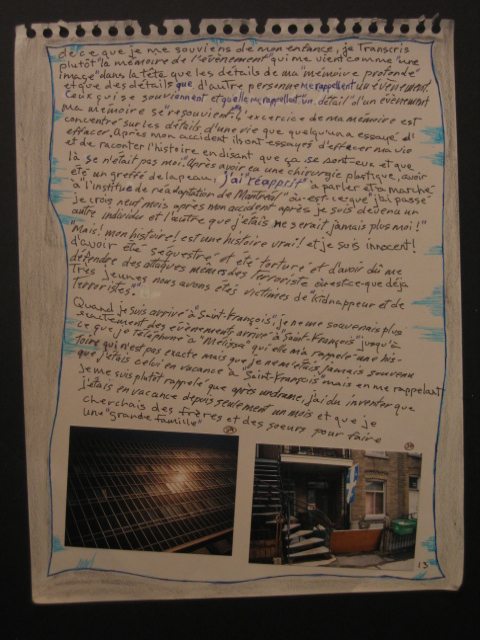 de ce que je me souviens de mon enfance, je Transcris
plutôt "la mémoire de l'évènement" qui me vient comme "une
image" dans la tête que les détails de ma "mémoire profonde"
et que des détails que d'autre personne me rappellent du évènement.
Ceux qui se souviennent et qu'elle me rappellent un "détail" d'un évènement
ma mémoire se "resouvient". L'exercice de ma mémoire est
concentré sur les détails d'une vie que quelqu'un a essayé d'
effacer. Après mon accident ils ont essayés d'effacer ma vie
et de raconter l'histoire en disant que ça se sont eux et que
là se n'était pas moi. Après avoir eu une chirurgie plastique, avoir
été un greffé de la peau, j'ai "réappris" à parler et à marché
à "l'institut de réadaptation de Montréal" où est-ce que j'ai passé
je crois neuf mois après mon accident après je suis devenu un
autre individu et l'autre que j'étais ne serait jamais plus moi!"
"Mais! mon histoire! est une histoire vrai! et je suis innocent!
d'avoir été séquestré et été torturé et d'avoir dû me
défendre des attaques menés des Terroriste où est-ce que déjà
Très jeunes nous avons étés victimes de "Kidnappeur et de
Terroristes".
Quand je suis arrivé à "Saint-François", je ne me souvenais plus
exactement des évènements arrivé à "Saint-François" jusqu'à
ce que je Téléphone à "Mélissa" qui elle m'a rappelé une his-
toire qui n'est pas exacte mais que je ne m'étais jamais souvenu
que j'étais celui en vacance à "Saint-François" mais en me rappelant
je me suis plutôt rappelé que après un drame, j'ai du inventer que
j'étais en vacance depuis seulement un mois et que je
cherchais des frères et des soeurs pour faire
une "grande famille"
13